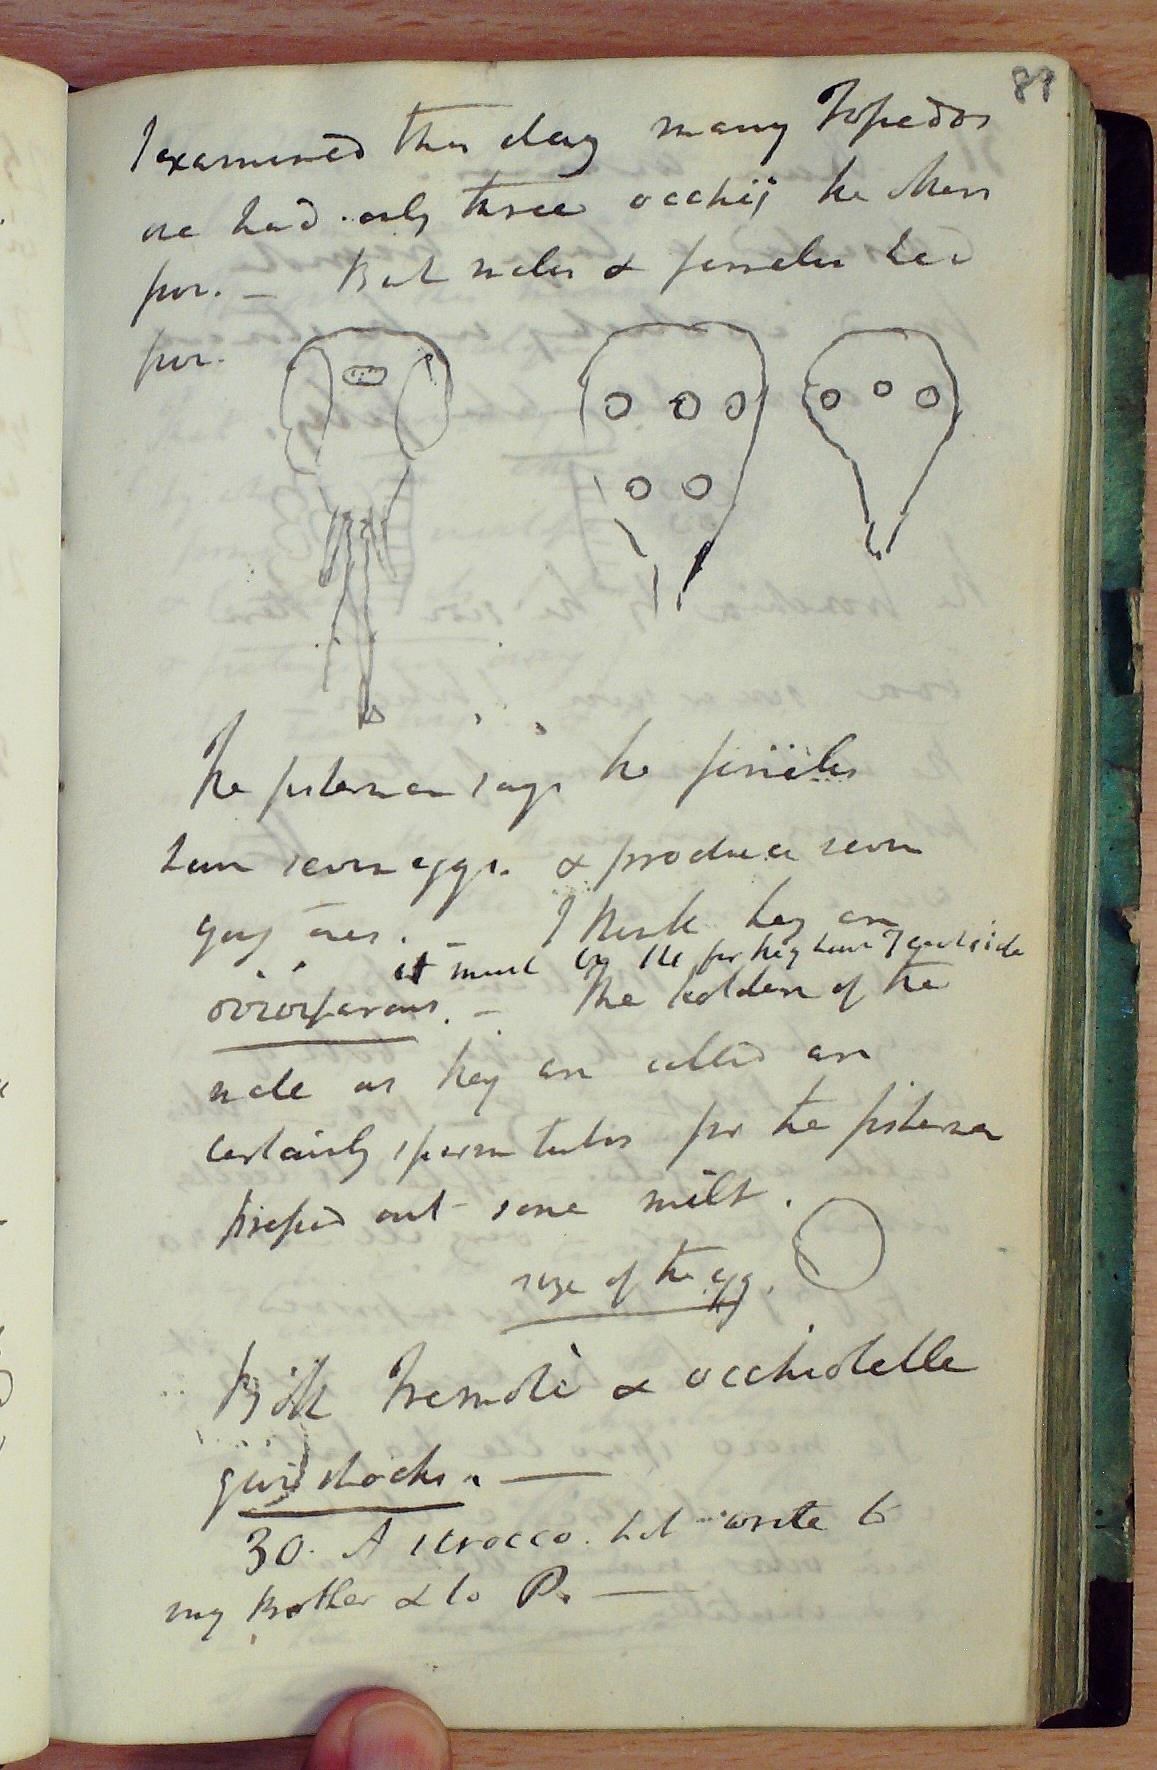 89
I examined this day many Torpedos
one had only three occhij the others
four. – But males & females had
four.
The fisherman says the females
have seven eggs. & produce seven
young ones. – I think they are
it must be so for they have 7 outside
oviviparous. – The holders of the
male as they are called are
certainly sperm tubes for the fisherman
pressed out some milt.
size of the egg.
Both Tremole & occhiatelle
give shocks. —
30. A scirocco. hot wrote to
my Brother & to P. —